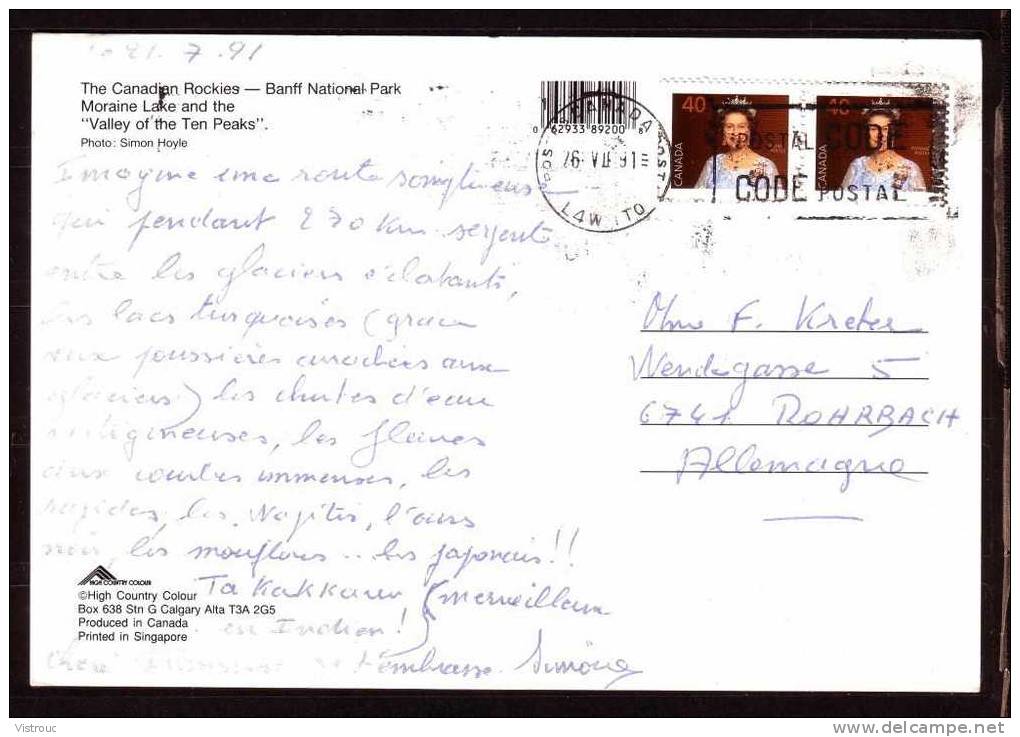 21.7.91
The Canadian Rockies — Banff National Park
Moraine Lake and the
"Valley of the Ten Peaks".
Photo: Simon Hoyle
Imagine une route
qui pendant 230 km serpente
entre les glaciers éclatants,
les lacs turquoises (grace
aux poussières arrachées aux
glaciers) les chutes d'eau
vertigineuses, les fleuves
aux courbes immenses, les
rapides, les Wapitis, l'ours
noir, les mouflons .. les japonais!!
Takakkaw (merveilleux
en Indien!)
t'embrasse. Simone
HIGH COUNTRY COLOUR
©High Country Colour
Box 638 Stn G Calgary Alta T3A 2G5
Produced in Canada
Printed in Singapore
0 62933 89200 8
CANADA
26 VII 91
L4W 1T0
40 CANADA
40 CANADA
POSTAL CODE
CODE POSTAL
F. Kreter
Wendegasse 5
6741 ROHRBACH
Allemagne
Vistrouc
delcampe.net